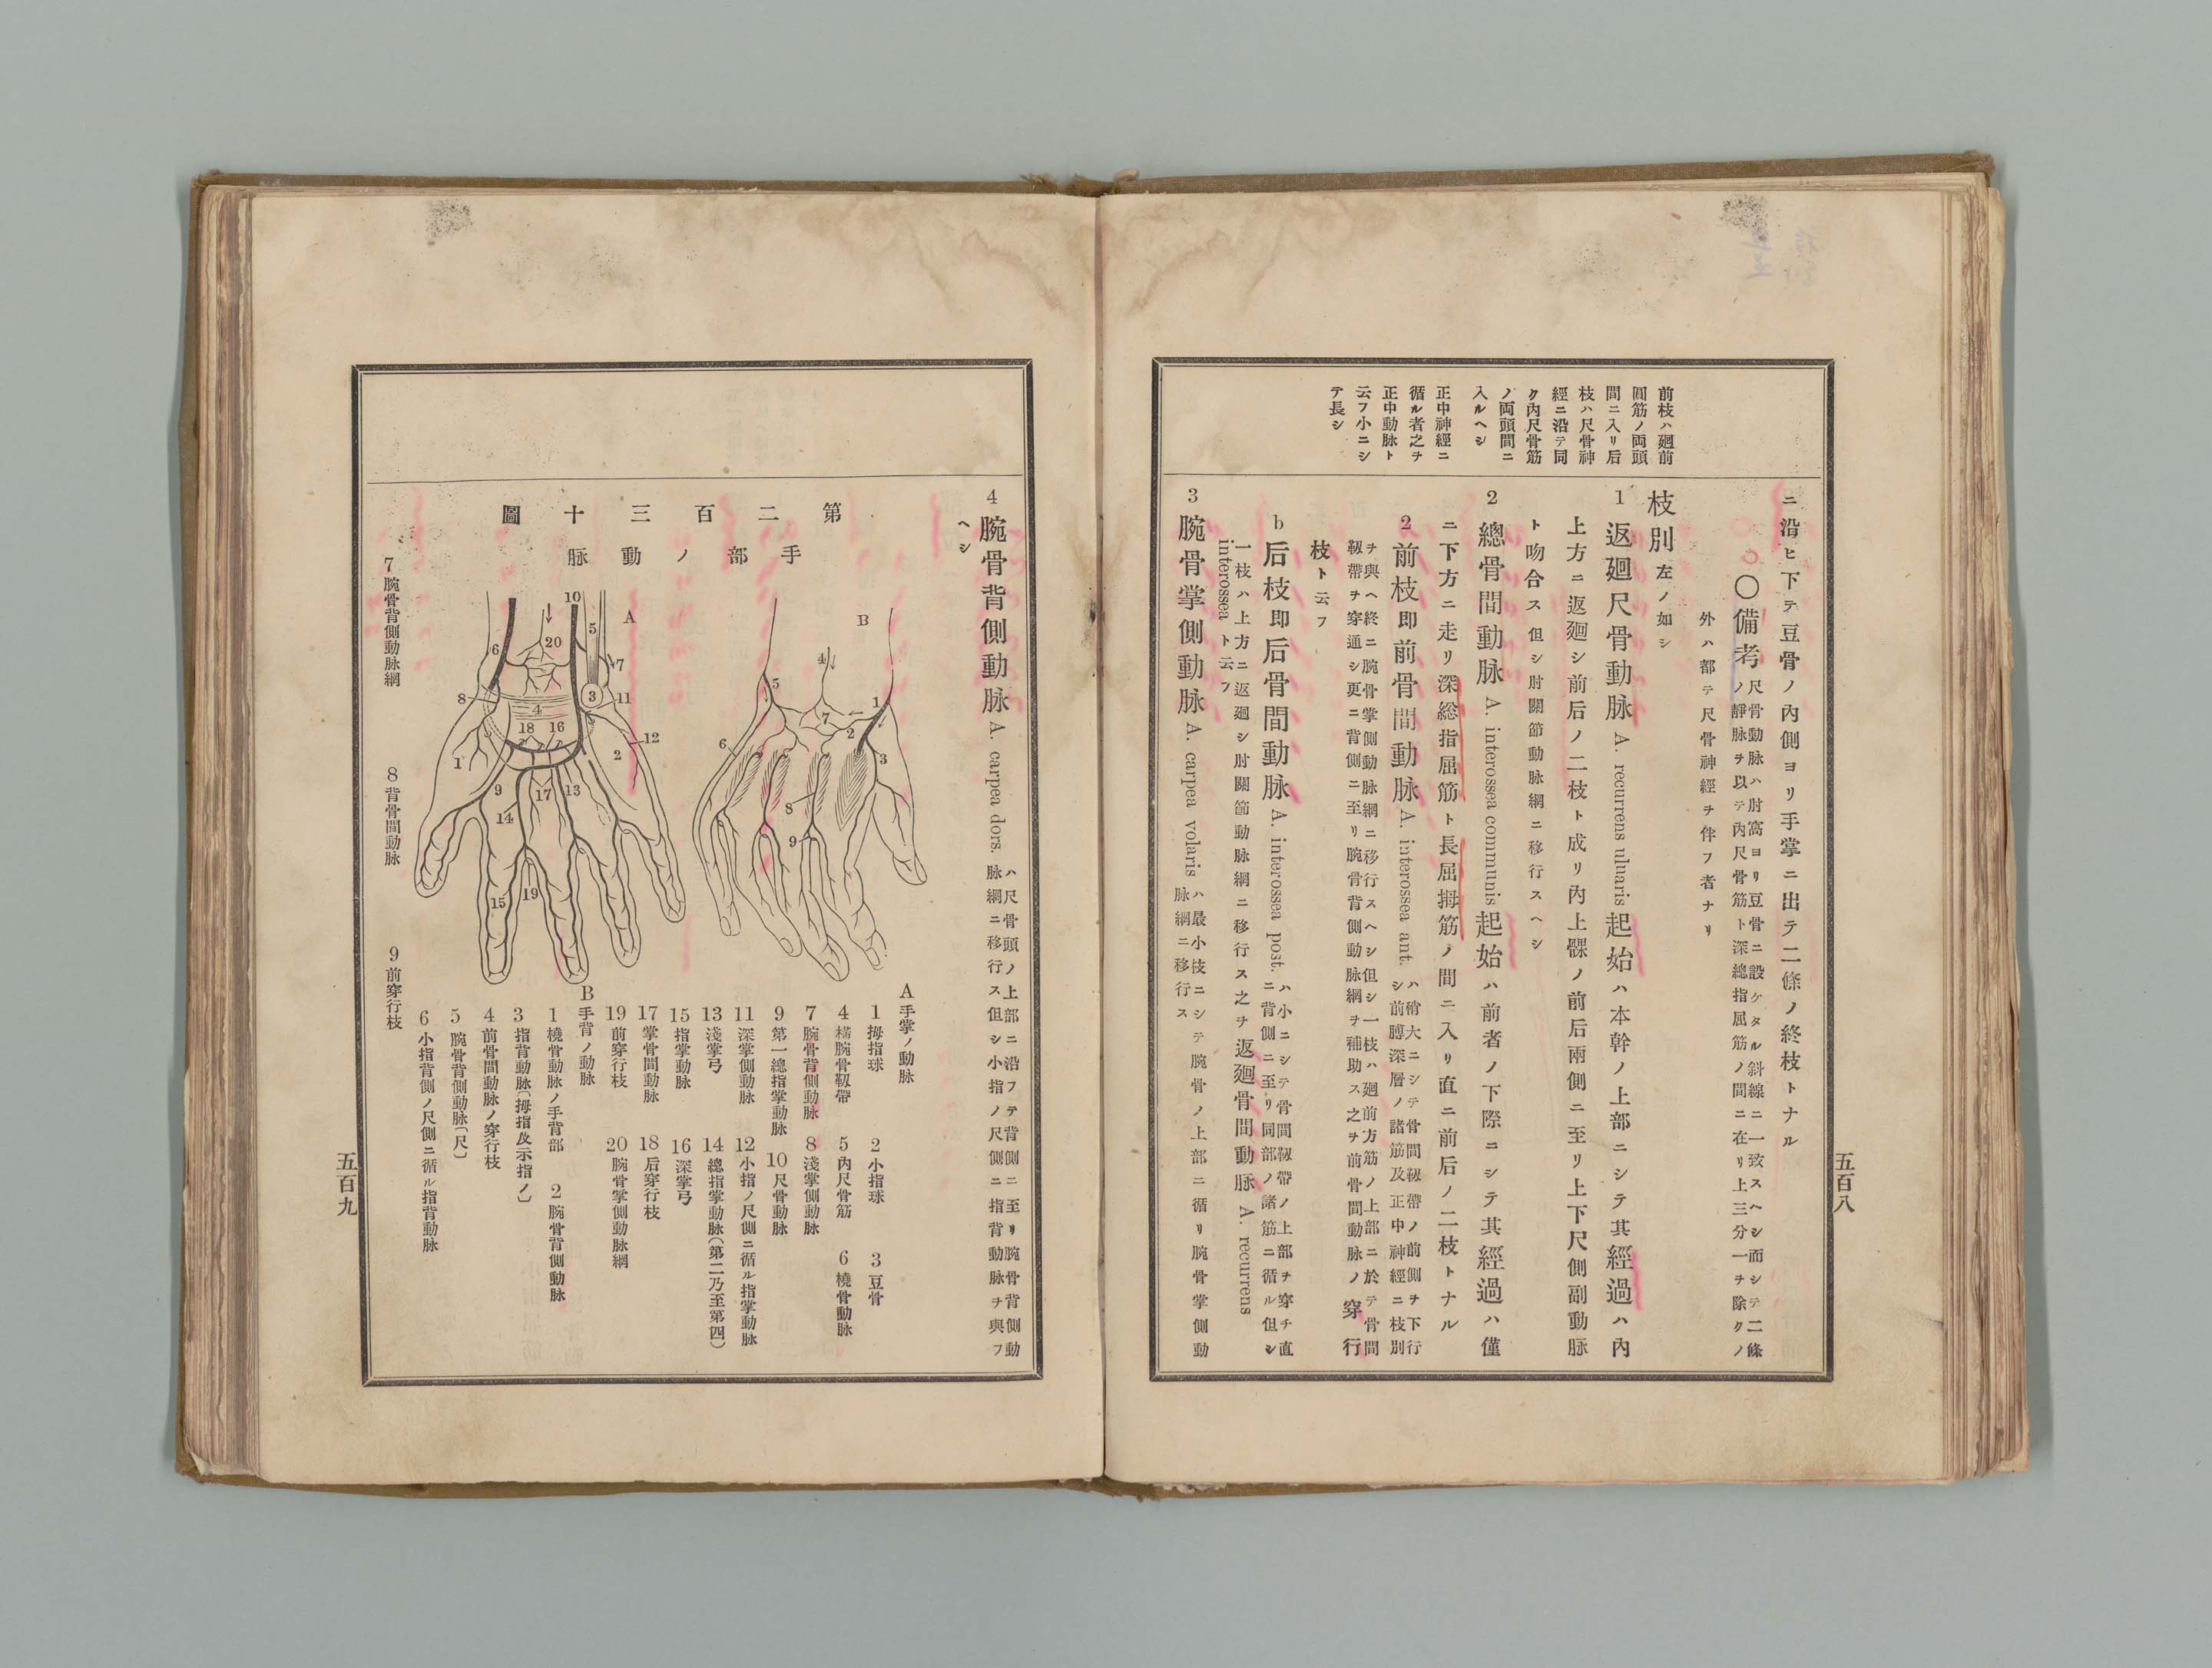 五百八
前枝ハ廻前
圓筋ノ両頭
間ニ入リ后
枝ハ尺骨神
經ニ沿テ同
ク內尺骨筋
ノ両頭間ニ
入ルヘシ
正中神經ニ
循ル者之ヲ
正中動脉ト
云フ小ニシ
テ長シ
ニ沿ヒ下テ豆骨ノ內側ヨリ手掌ニ出テ二條ノ終枝トナル
〇備考 尺骨動脉ハ肘窩ヨリ豆骨ニ設ケタル斜線ニ一致スヘシ而シテ二條
ノ靜脉ヲ以テ內尺骨筋ト深總指屈筋ノ間ニ在リ上三分一ヲ除クノ
外ハ都テ尺骨神經ヲ伴フ者ナリ
枝別 左ノ如シ
1 返廻尺骨動脉 A. recurrens ulnaris 起始ハ本幹ノ上部ニシテ其經過ハ內
上方ニ返廻シ前后ノ二枝ト成リ內上髁ノ前后兩側ニ至リ上下尺側副動脉
ト吻合ス 但シ肘關節動脉網ニ移行スヘシ
2 總骨間動脉 A. interossea communis 起始ハ前者ノ下際ニシテ其經過ハ僅
ニ下方ニ走リ深総指屈筋ト長屈拇筋ノ間ニ入リ直ニ前后ノ二枝トナル
2 前枝即前骨間動脉 A. interossea ant. ハ稍大ニシテ骨間靱帶ノ前側ヲ下行
シ前膊深層ノ諸筋及正中神經ニ枝別
ヲ與ヘ終ニ腕骨掌側動脉網ニ移行スヘシ但シ一枝ハ廻前方筋ノ上部ニ於テ骨間
靱帶ヲ穿通シ更ニ背側ニ至リ腕骨背側動脉網ヲ補助ス之ヲ前骨間動脉ノ穿行
枝ト云フ
b 后枝即后骨間動脉 A. interossea post. ハ小ニシテ骨間靱帶ノ上部ヲ穿チ直
ニ背側ニ至リ同部ノ諸筋ニ循ル但シ
一枝ハ上方ニ返廻シ肘關節動脉網ニ移行ス之ヲ返廻骨間動脉 A. recurrens
interossea ト云フ
3 腕骨掌側動脉 A. carpea volaris ハ最小枝ニシテ腕骨ノ上部ニ循リ腕骨掌側動
脉網ニ移行ス
4 腕骨背側動脉 A. carpea dors. ハ尺骨頭ノ上部ニ沿フテ背側ニ至リ腕骨背側動
脉網ニ移行ス但シ小指ノ尺側ニ指背動脉ヲ與フ
ヘシ
第二百三十圖
手部ノ動脉
A
10
5
20
6
7
8
3
11
4
18
16
12
2
1
9
17
13
14
19
15
B
4
5
1
7
2
6
3
8
9
A 手掌ノ動脉
1 拇指球 2 小指球 3 豆骨
4 橫腕骨靱帶 5 內尺骨筋 6 橈骨動脉
7 腕骨背側動脉 8 淺掌側動脉
9 第一總指掌動脉 10 尺骨動脉
11 深掌側動脉 12 小指ノ尺側ニ循ル指掌動脉
13 淺掌弓 14 總指掌動脉(第二乃至第四)
15 指掌動脉 16 深掌弓
17 掌骨間動脉 18 后穿行枝
19 前穿行枝 20 腕骨掌側動脉網
B 手背ノ動脉
1 橈骨動脉ノ手背部 2 腕骨背側動脉
3 指背動脉(拇指及示指ノ)
4 前骨間動脉ノ穿行枝
5 腕骨背側動脉(尺)
6 小指背側ノ尺側ニ循ル指背動脉
7 腕骨背側動脉網 8 背骨間動脉 9 前穿行枝
五百九